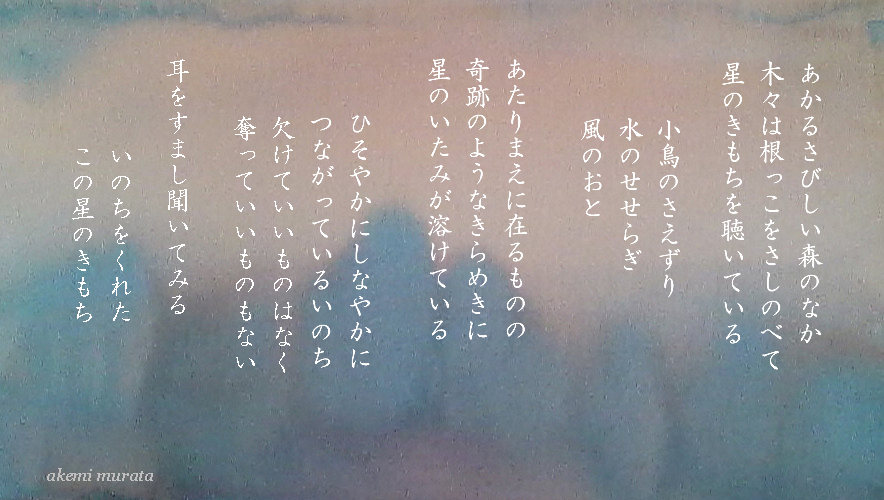 あかるさびしい森のなか
木々は根っこをさしのべて
星のきもちを聴いている
小鳥のさえずり
水のせせらぎ
風のおと
あたりまえに在るものの
奇跡のようなきらめきに
星のいたみが溶けている
ひそやかにしなやかに
つながっているいのち
欠けていいものはなく
奪っていいものもない
耳をすまし聞いてみる
いのちをくれた
この星のきもち
akemi murata